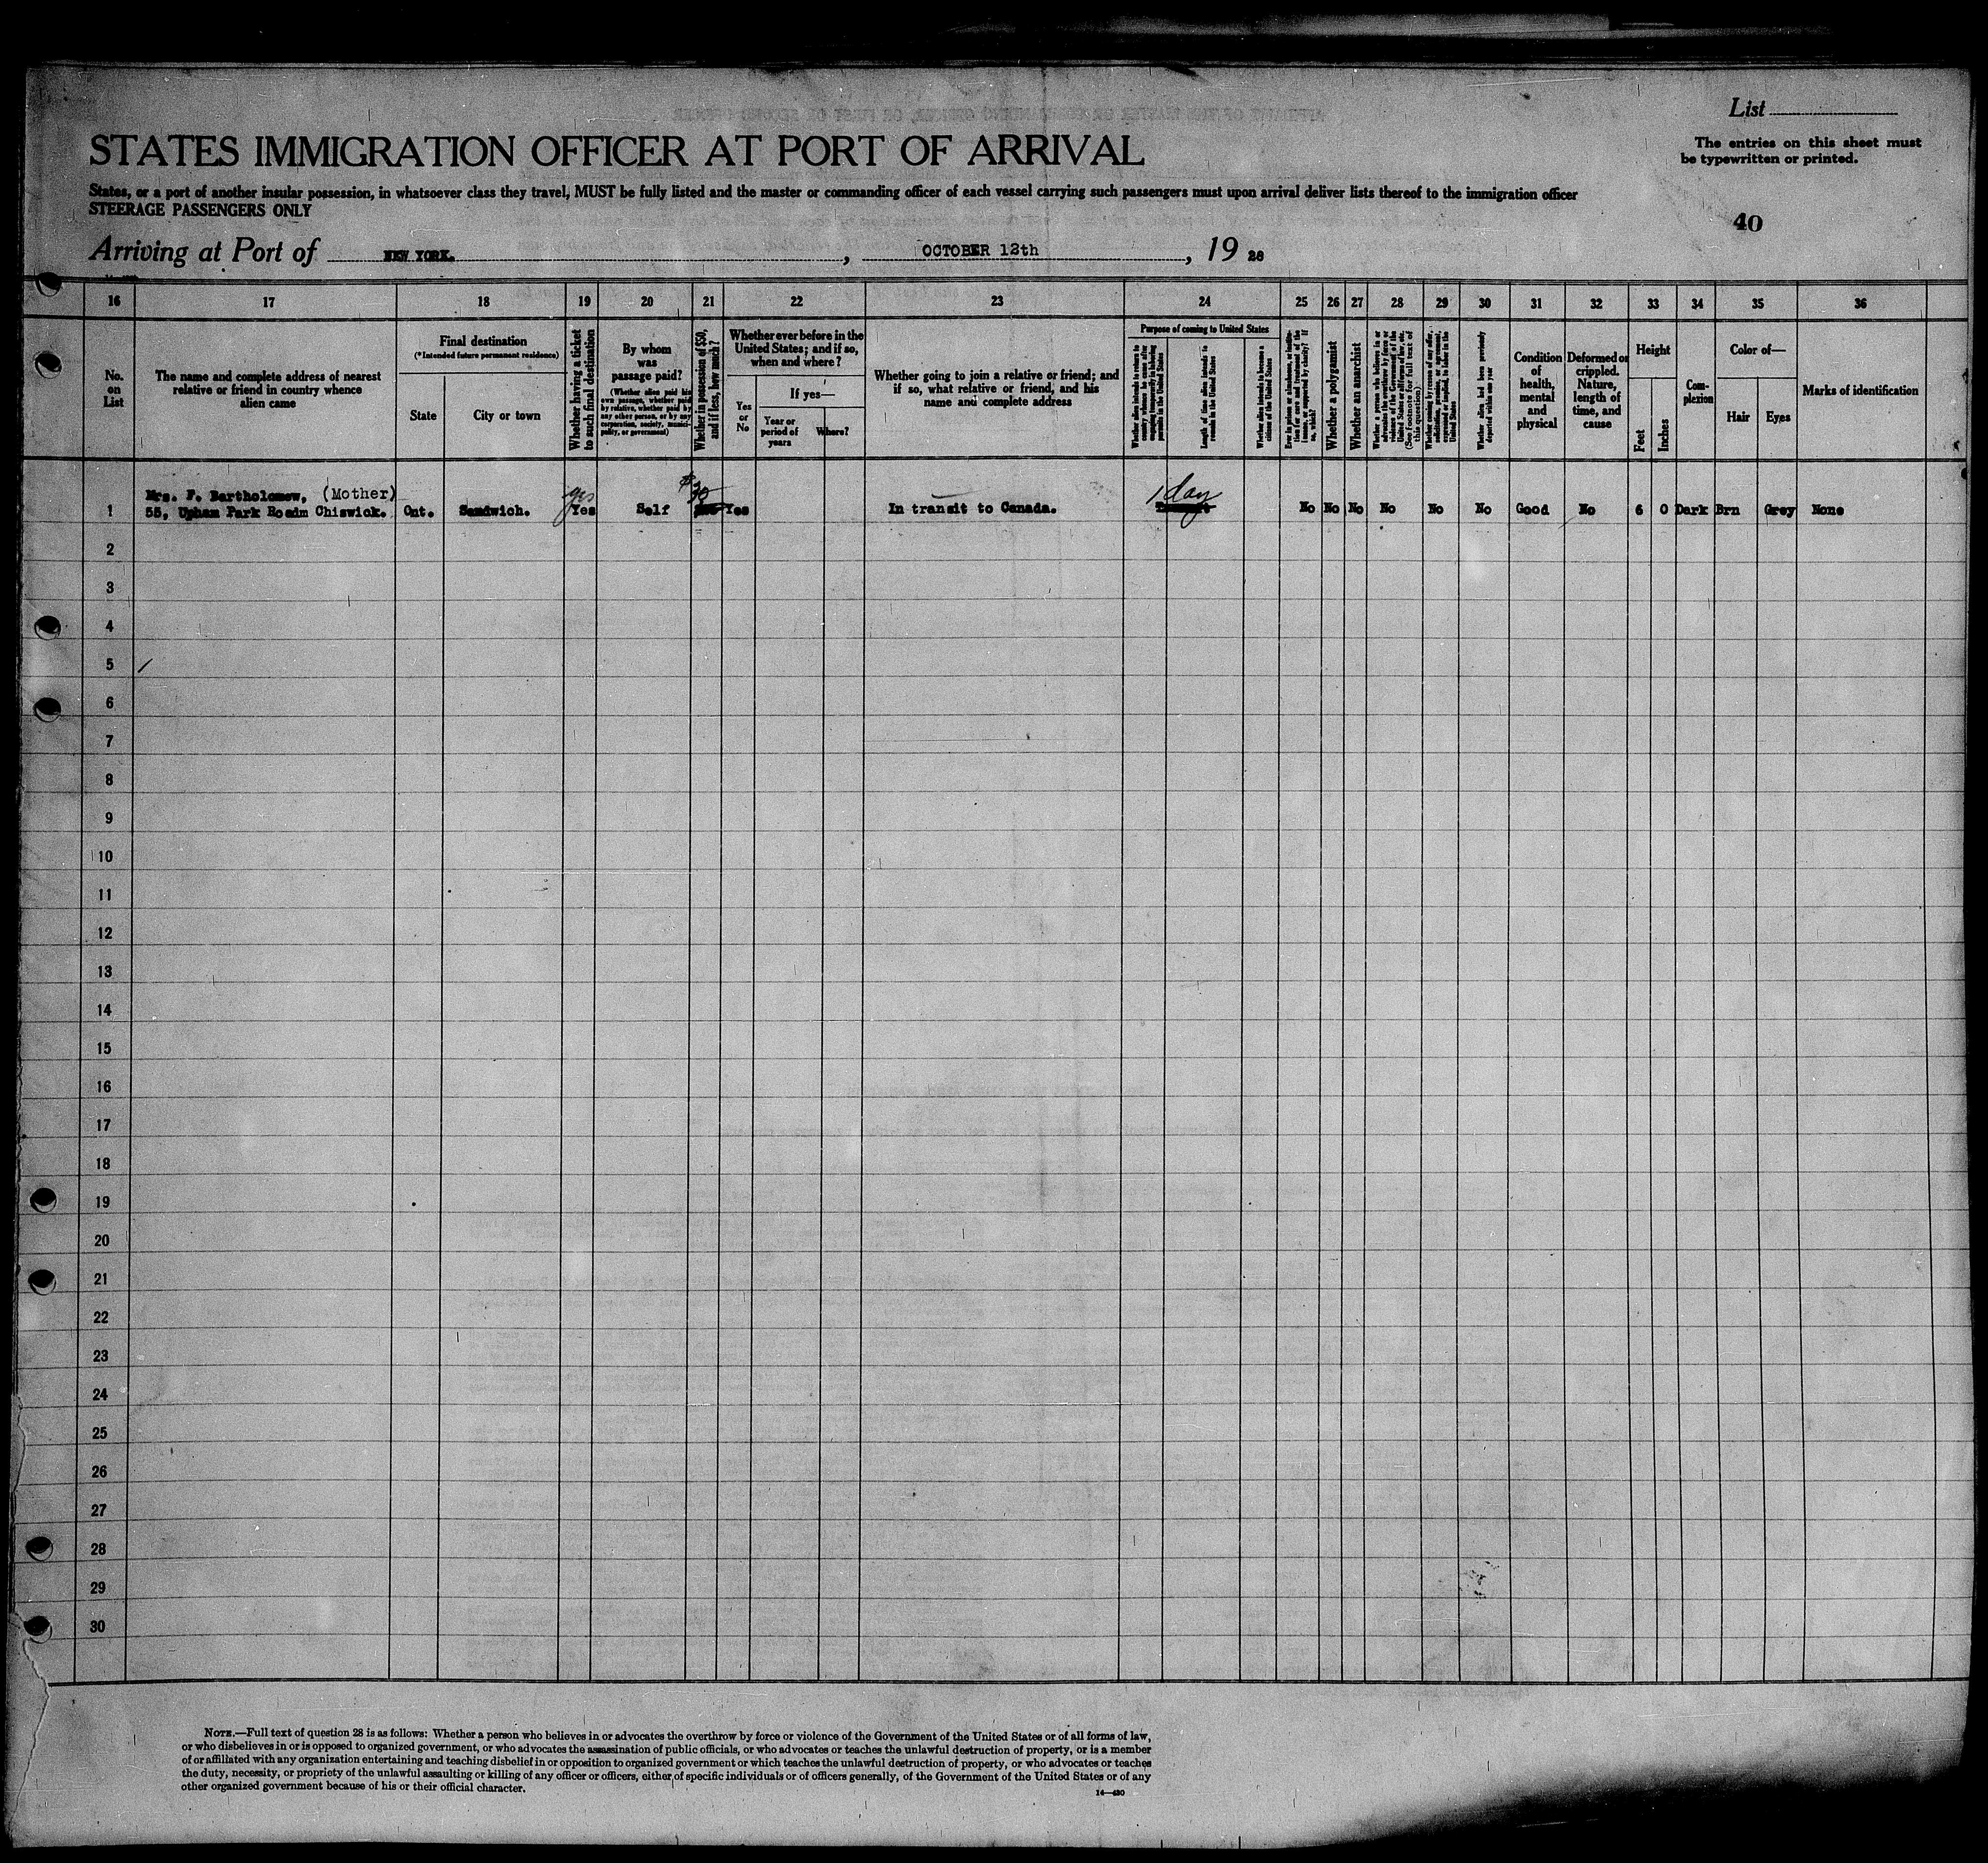 List
STATES IMMIGRATION OFFICER AT PORT OF ARRIVAL
The entries on this sheet must
be typewritten or printed.
States, or a port of another insular possession, in whatsoever class they travel, MUST be fully listed and the master or commanding officer of each vessel carrying such passengers must upon arrival deliver lists thereof to the immigration officer
STEERAGE PASSENGERS ONLY
40
Arriving at Port of NEW YORK. , OCTOBER 12th , 19 26
16 17 18 19 20 21 22 23 24 25 26 27 28 29 30 31 32 33 34 35 36
No.
on
List
The name and complete address of nearest
relative or friend in country whence
alien came
Final destination
(*Intended future permanent residence)
State
City or town
Whether having a ticket
to such final destination
By whom
was
passage paid?
(Whether alien paid his
own passage, whether paid
by relative, whether paid by
any other person, or by any
corporation, society, munici-
pality, or government)
Whether in possession of $50,
and if less, how much?
Whether ever before in the
United States; and if so,
when and where?
Yes
or
No
If yes—
Year or
period of
years
Where?
Whether going to join a relative or friend; and
if so, what relative or friend, and his
name and complete address
Purpose of coming to United States
Whether alien intends to return to
country whence he came after
engaging temporarily in laboring
pursuits in the United States
Length of time alien intends to
remain in the United States
Whether alien intends to become a
citizen of the United States
Ever in prison or almshouse, or institu-
tion for care and treatment of the
insane, or supported by charity? If
so, which?
Whether a polygamist
Whether an anarchist
(See footnote for full text of
this question)
Whether alien had been previously
deported within one year
Condition
of
health,
mental
and
physical
Deformed or
crippled.
Nature,
length of
time, and
cause
Height
Feet
Inches
Com-
plexion
Color of—
Hair
Eyes
Marks of identification
Mrs. F. Bartholomew, (Mother) yes $ 1 day
1 55, Upham Park Roadm Chiswick. Ont. Sandwich. Yes Self Yes In transit to Canada. No No No No No No Good No 6 0 Dark Brn Grey None
2
3
4
5
6
7
8
9
10
11
12
13
14
15
16
17
18
19
20
21
22
23
24
25
26
27
28
29
30
NOTE.—Full text of question 28 is as follows: Whether a person who believes in or advocates the overthrow by force or violence of the Government of the United States or of all forms of law,
or who disbelieves in or is opposed to organized government, or who advocates the assassination of public officials, or who advocates or teaches the unlawful destruction of property, or is a member
of or affiliated with any organization entertaining and teaching disbelief in or opposition to organized government or which teaches the unlawful destruction of property, or who advocates or teaches
the duty, necessity, or propriety of the unlawful assaulting or killing of any officer or officers, either of specific individuals or of officers generally, of the Government of the United States or of any
other organized government because of his or their official character.
14—430